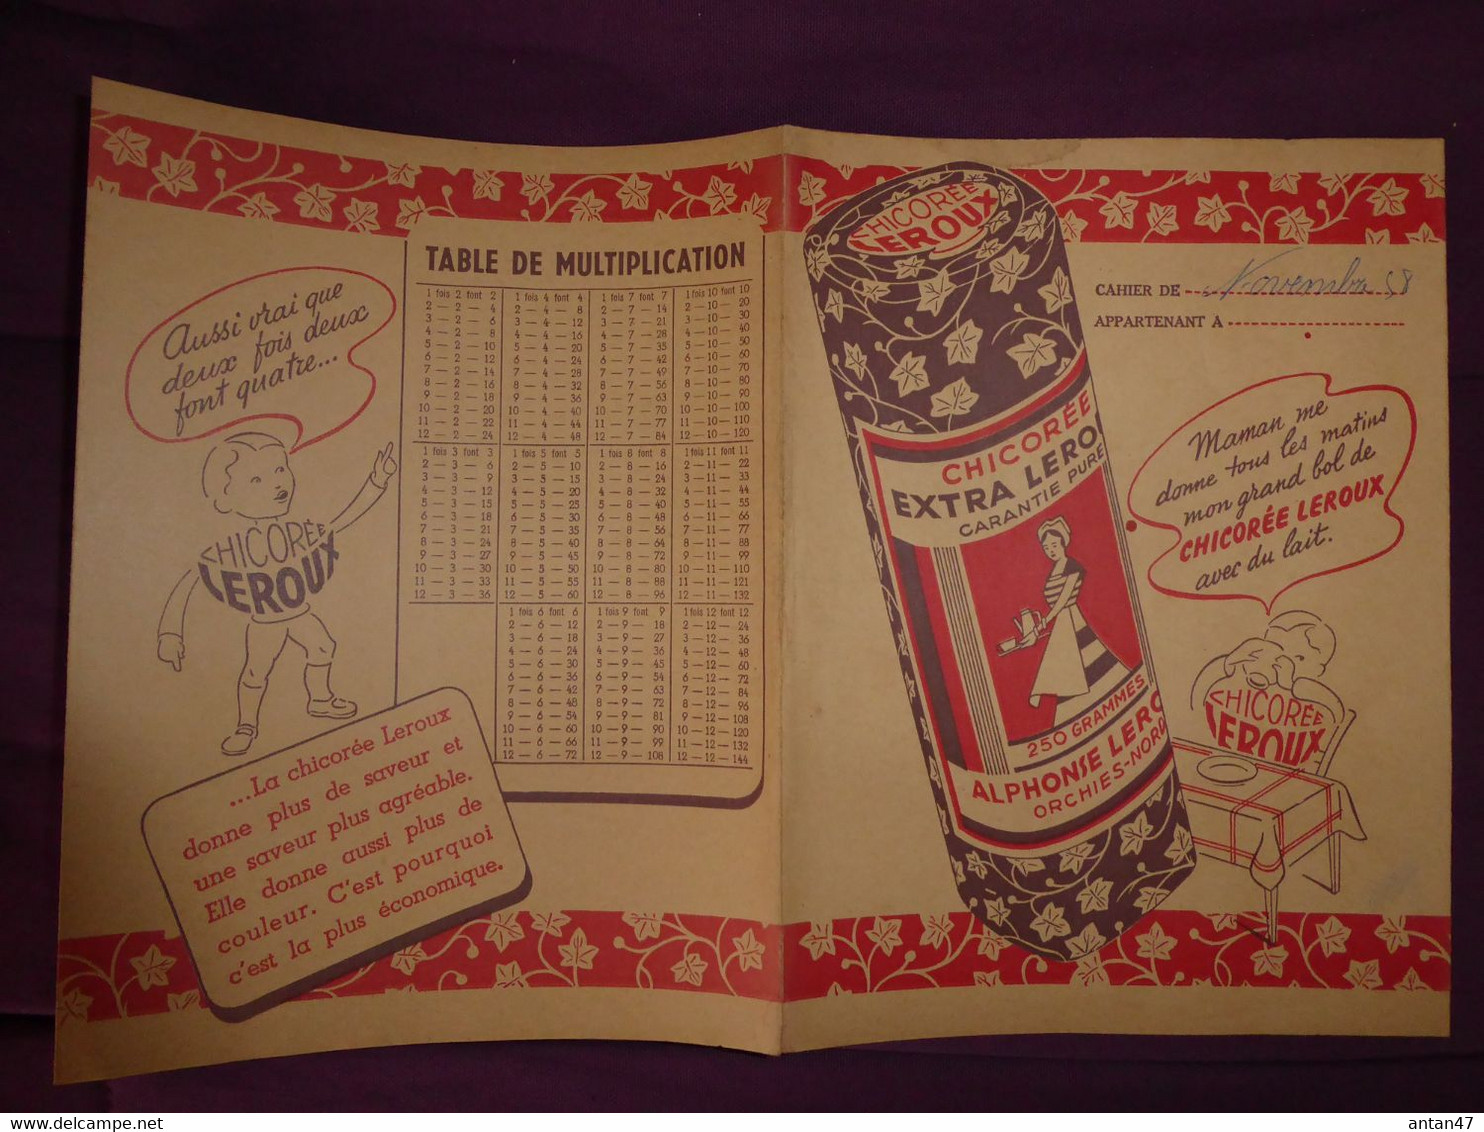 Aussi vrai que
deux fois deux
font quatre...
CHICORÉE
LEROUX
...La chicorée Leroux
donne plus de saveur et
une saveur plus agréable.
Elle donne aussi plus de
couleur. C'est pourquoi
c'est la plus économique.
TABLE DE MULTIPLICATION
1 fois 2 font 2
2 — 2 — 4
3 — 2 — 6
4 — 2 — 8
5 — 2 — 10
6 — 2 — 12
7 — 2 — 14
8 — 2 — 16
9 — 2 — 18
10 — 2 — 20
11 — 2 — 22
12 — 2 — 24
1 fois 4 font 4
2 — 4 — 8
3 — 4 — 12
4 — 4 — 16
5 — 4 — 20
6 — 4 — 24
7 — 4 — 28
8 — 4 — 32
9 — 4 — 36
10 — 4 — 40
11 — 4 — 44
12 — 4 — 48
1 fois 7 font 7
2 — 7 — 14
3 — 7 — 21
4 — 7 — 28
5 — 7 — 35
6 — 7 — 42
7 — 7 — 49
8 — 7 — 56
9 — 7 — 63
10 — 7 — 70
11 — 7 — 77
12 — 7 — 84
1 fois 10 font 10
2 — 10 — 20
3 — 10 — 30
4 — 10 — 40
5 — 10 — 50
6 — 10 — 60
7 — 10 — 70
8 — 10 — 80
9 — 10 — 90
10 — 10 — 100
11 — 10 — 110
12 — 10 — 120
1 fois 3 font 3
2 — 3 — 6
3 — 3 — 9
4 — 3 — 12
5 — 3 — 15
6 — 3 — 18
7 — 3 — 21
8 — 3 — 24
9 — 3 — 27
10 — 3 — 30
11 — 3 — 33
12 — 3 — 36
1 fois 5 font 5
2 — 5 — 10
3 — 5 — 15
4 — 5 — 20
5 — 5 — 25
6 — 5 — 30
7 — 5 — 35
8 — 5 — 40
9 — 5 — 45
10 — 5 — 50
11 — 5 — 55
12 — 5 — 60
1 fois 8 font 8
2 — 8 — 16
3 — 8 — 24
4 — 8 — 32
5 — 8 — 40
6 — 8 — 48
7 — 8 — 56
8 — 8 — 64
9 — 8 — 72
10 — 8 — 80
11 — 8 — 88
12 — 8 — 96
1 fois 11 font 11
2 — 11 — 22
3 — 11 — 33
4 — 11 — 44
5 — 11 — 55
6 — 11 — 66
7 — 11 — 77
8 — 11 — 88
9 — 11 — 99
10 — 11 — 110
11 — 11 — 121
12 — 11 — 132
1 fois 6 font 6
2 — 6 — 12
3 — 6 — 18
4 — 6 — 24
5 — 6 — 30
6 — 6 — 36
7 — 6 — 42
8 — 6 — 48
9 — 6 — 54
10 — 6 — 60
11 — 6 — 66
12 — 6 — 72
1 fois 9 font 9
2 — 9 — 18
3 — 9 — 27
4 — 9 — 36
5 — 9 — 45
6 — 9 — 54
7 — 9 — 63
8 — 9 — 72
9 — 9 — 81
10 — 9 — 90
11 — 9 — 99
12 — 9 — 108
1 fois 12 font 12
2 — 12 — 24
3 — 12 — 36
4 — 12 — 48
5 — 12 — 60
6 — 12 — 72
7 — 12 — 84
8 — 12 — 96
9 — 12 — 108
10 — 12 — 120
11 — 12 — 132
12 — 12 — 144
CHICORÉE
LEROUX
CHICORÉE
EXTRA LEROU
GARANTIE PURE
250 GRAMMES
ALPHONSE LERO
ORCHIES-NORD
CAHIER DE Novembre 58
APPARTENANT A
Maman me
donne tous les matins
mon grand bol de
CHICORÉE LEROUX
avec du lait.
CHICORÉE
LEROUX
antan47